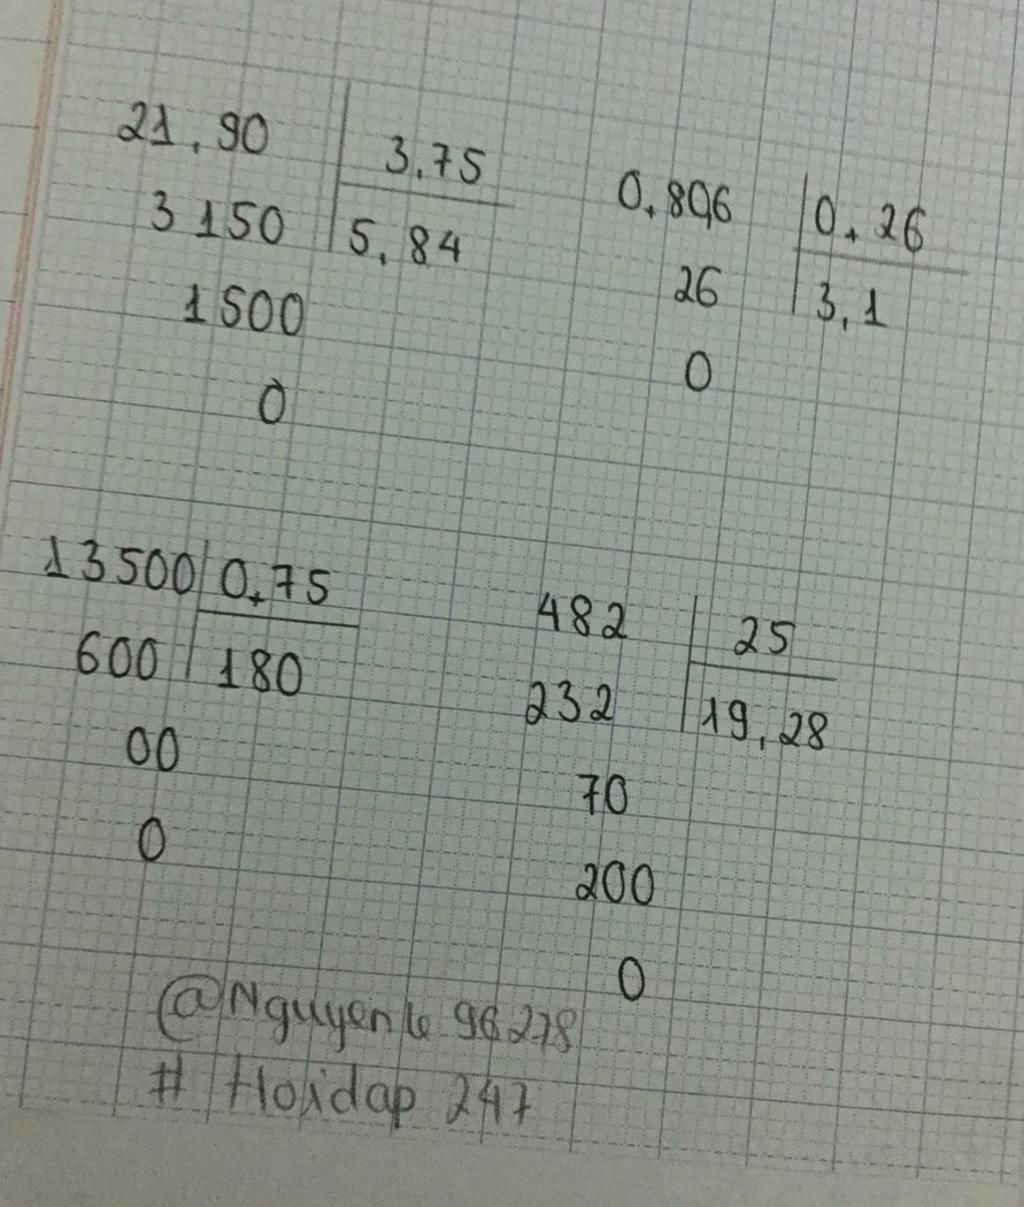 21,90 3,75
3150 5,84
1500
0
0,806 0,26
26 3,1
0
13500 0,75
600 180
00
0
482 25
232 19,28
70
200
0
@Nguyenle 96278
# Hoidap 247